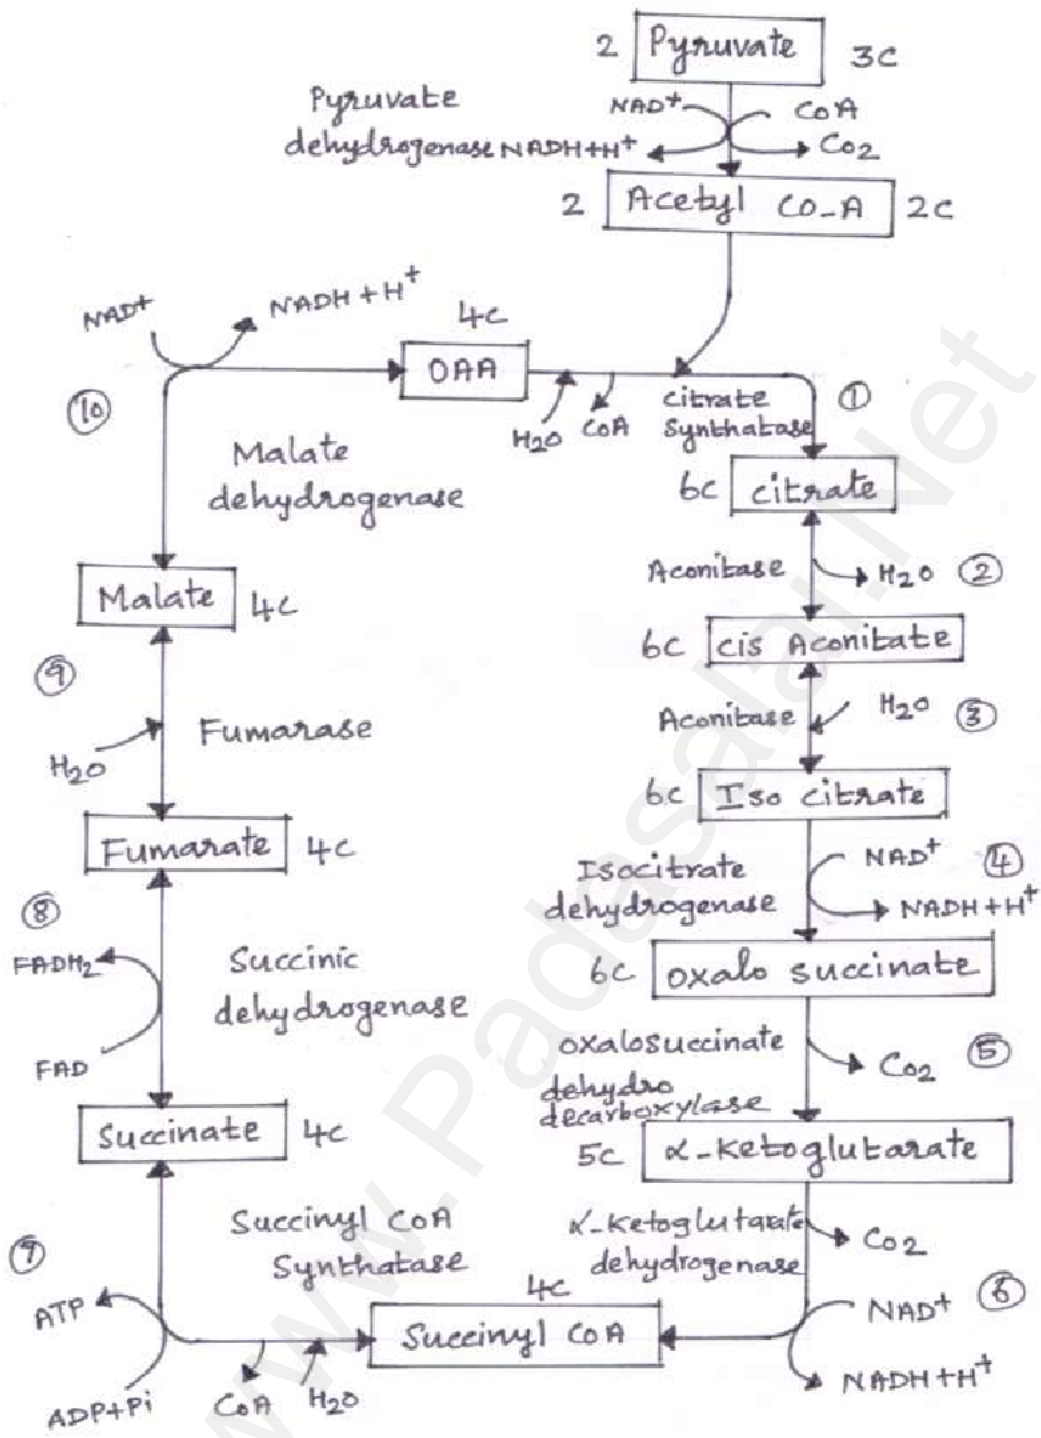 2 Pyruvate 3C
Pyruvate
dehydrogenase
NAD+
CoA
NADH+H+
CO2
2 Acetyl CO-A 2C
NAD+
NADH + H+
4C
OAA
H2O
CoA
citrate
synthatase
①
6C citrate
Aconitase
H2O
②
6C cis Aconitate
Aconitase
H2O
③
6C Iso citrate
Isocitrate
dehydrogenase
NAD+
④
NADH+H+
6C oxalo succinate
oxalosuccinate
dehydro
decarboxylase
CO2
⑤
5C α-ketoglutarate
α-ketoglutarate
dehydrogenase
CO2
NAD+
⑥
NADH+H+
4C
Succinyl CoA
H2O
CoA
Succinyl CoA
Synthatase
⑦
ATP
ADP+Pi
Succinate 4C
Succinic
dehydrogenase
⑧
FADH2
FAD
Fumarate 4C
Fumarase
⑨
H2O
Malate 4C
Malate
dehydrogenase
⑩
www.Padasalai.Net